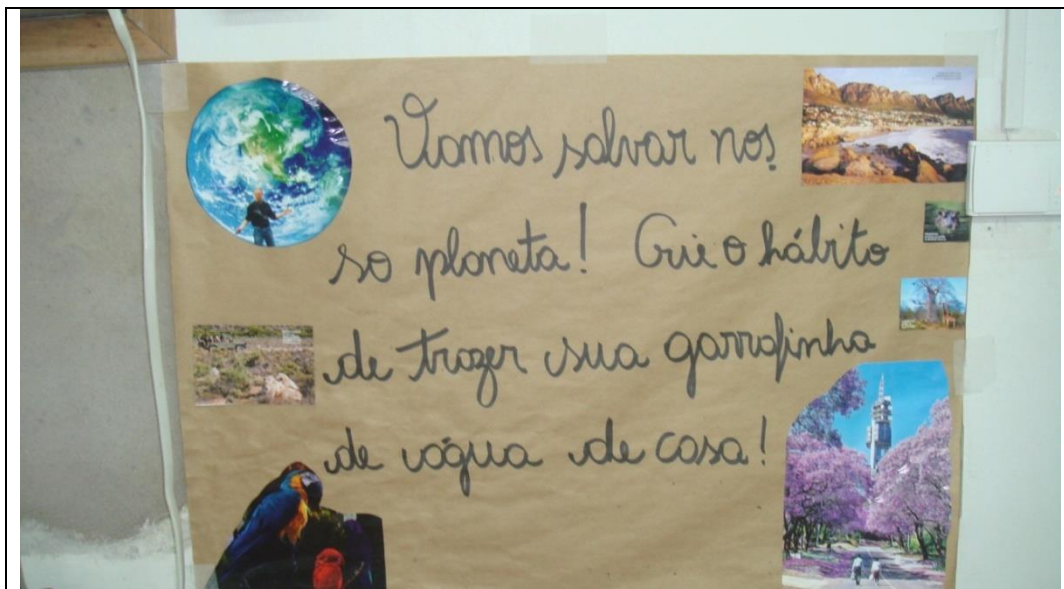 Vamos salvar nos
so planeta! Crie o hábito
de trazer sua garrafinha
de água de casa!